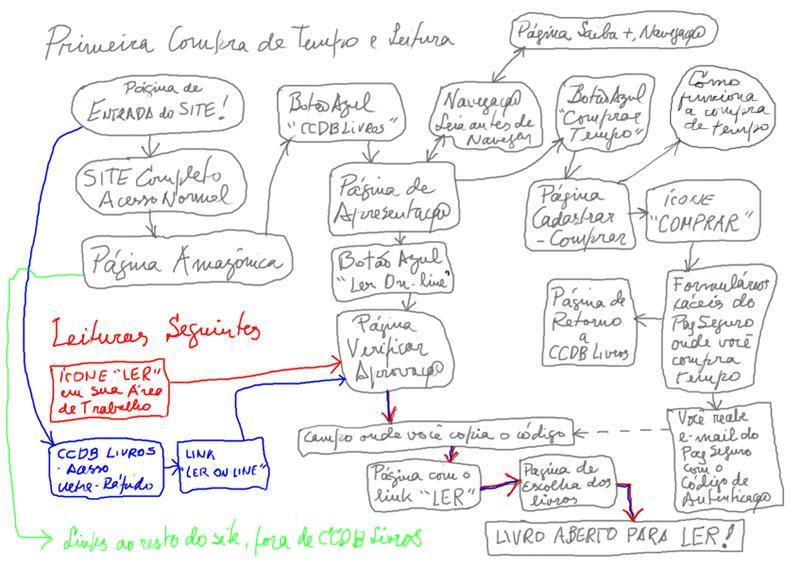 Primeira Compra de Tempo e Leitura
Página Saiba +, Navegação
Página de
ENTRADA do SITE!
Botão Azul
"CCDB Livros"
Navegação
Leia antes de
Navegar
Botão Azul
"Comprar
Tempo"
Como
funciona
a compra
de tempo
SITE Completo
Acesso Normal
Página de
Apresentação
Página
Cadastrar
- Comprar
ÍCONE
"COMPRAR"
Página Amazônica
Botão Azul
"Ler On-line"
Página de
Retorno
a
CCDB Livros
Formulários
fáceis do
PagSeguro
onde você
compra
tempo
Leituras Seguintes
Página
Verificar
Aprovação
ÍCONE "LER"
em sua Área
de Trabalho
Campo onde você copia o código
Você recebe
e-mail do
PagSeguro
com o
Código de
Autenticação
CCDB LIVROS
- Acesso
Ultra-Rápido
LINK
"LER ON-LINE"
Página com o
link "LER"
Página de
Escolha dos
livros
LIVRO ABERTO PARA LER!
Links ao resto do site, fora de CCDB Livros